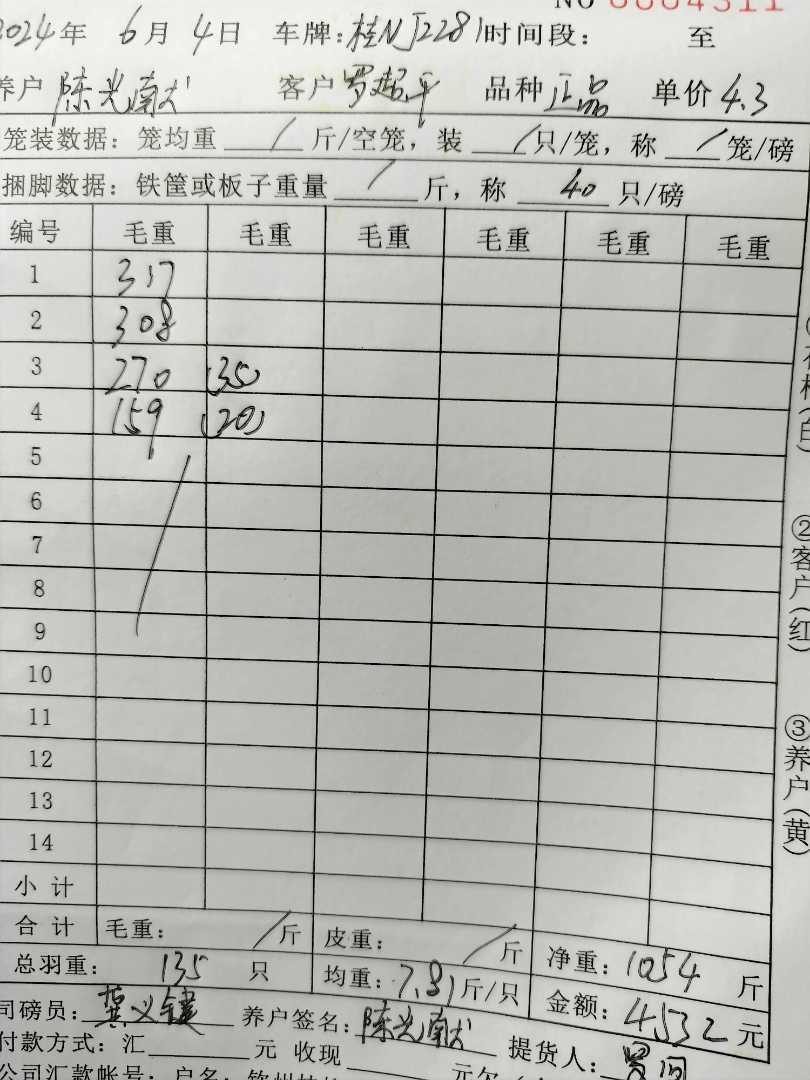 NO 0004311
2024年 6月 4日 车牌:桂NJ2281时间段: 至
养户 陈光南 客户 罗超平 品种 正品 单价 4.3
笼装数据: 笼均重 / 斤/空笼, 装 / 只/笼, 称 / 笼/磅
捆脚数据: 铁筐或板子重量 / 斤, 称 40 只/磅
编号 毛重 毛重 毛重 毛重 毛重 毛重
1 317
2 308
3 270 (35)
4 159 (20)
5
6
7
8
9
10
11
12
13
14
小计
合计 毛重: / 斤 皮重: / 斤 净重: 1054 斤
总羽重: 135 只 均重: 7.81斤/只 金额: 4532元
司磅员: 龚义键 养户签名: 陈光南 提货人: 罗
付款方式: 汇 元 收现 元欠
公司汇款帐号: 户名: 钦州
(白)
②客户(红)
③养户(黄)